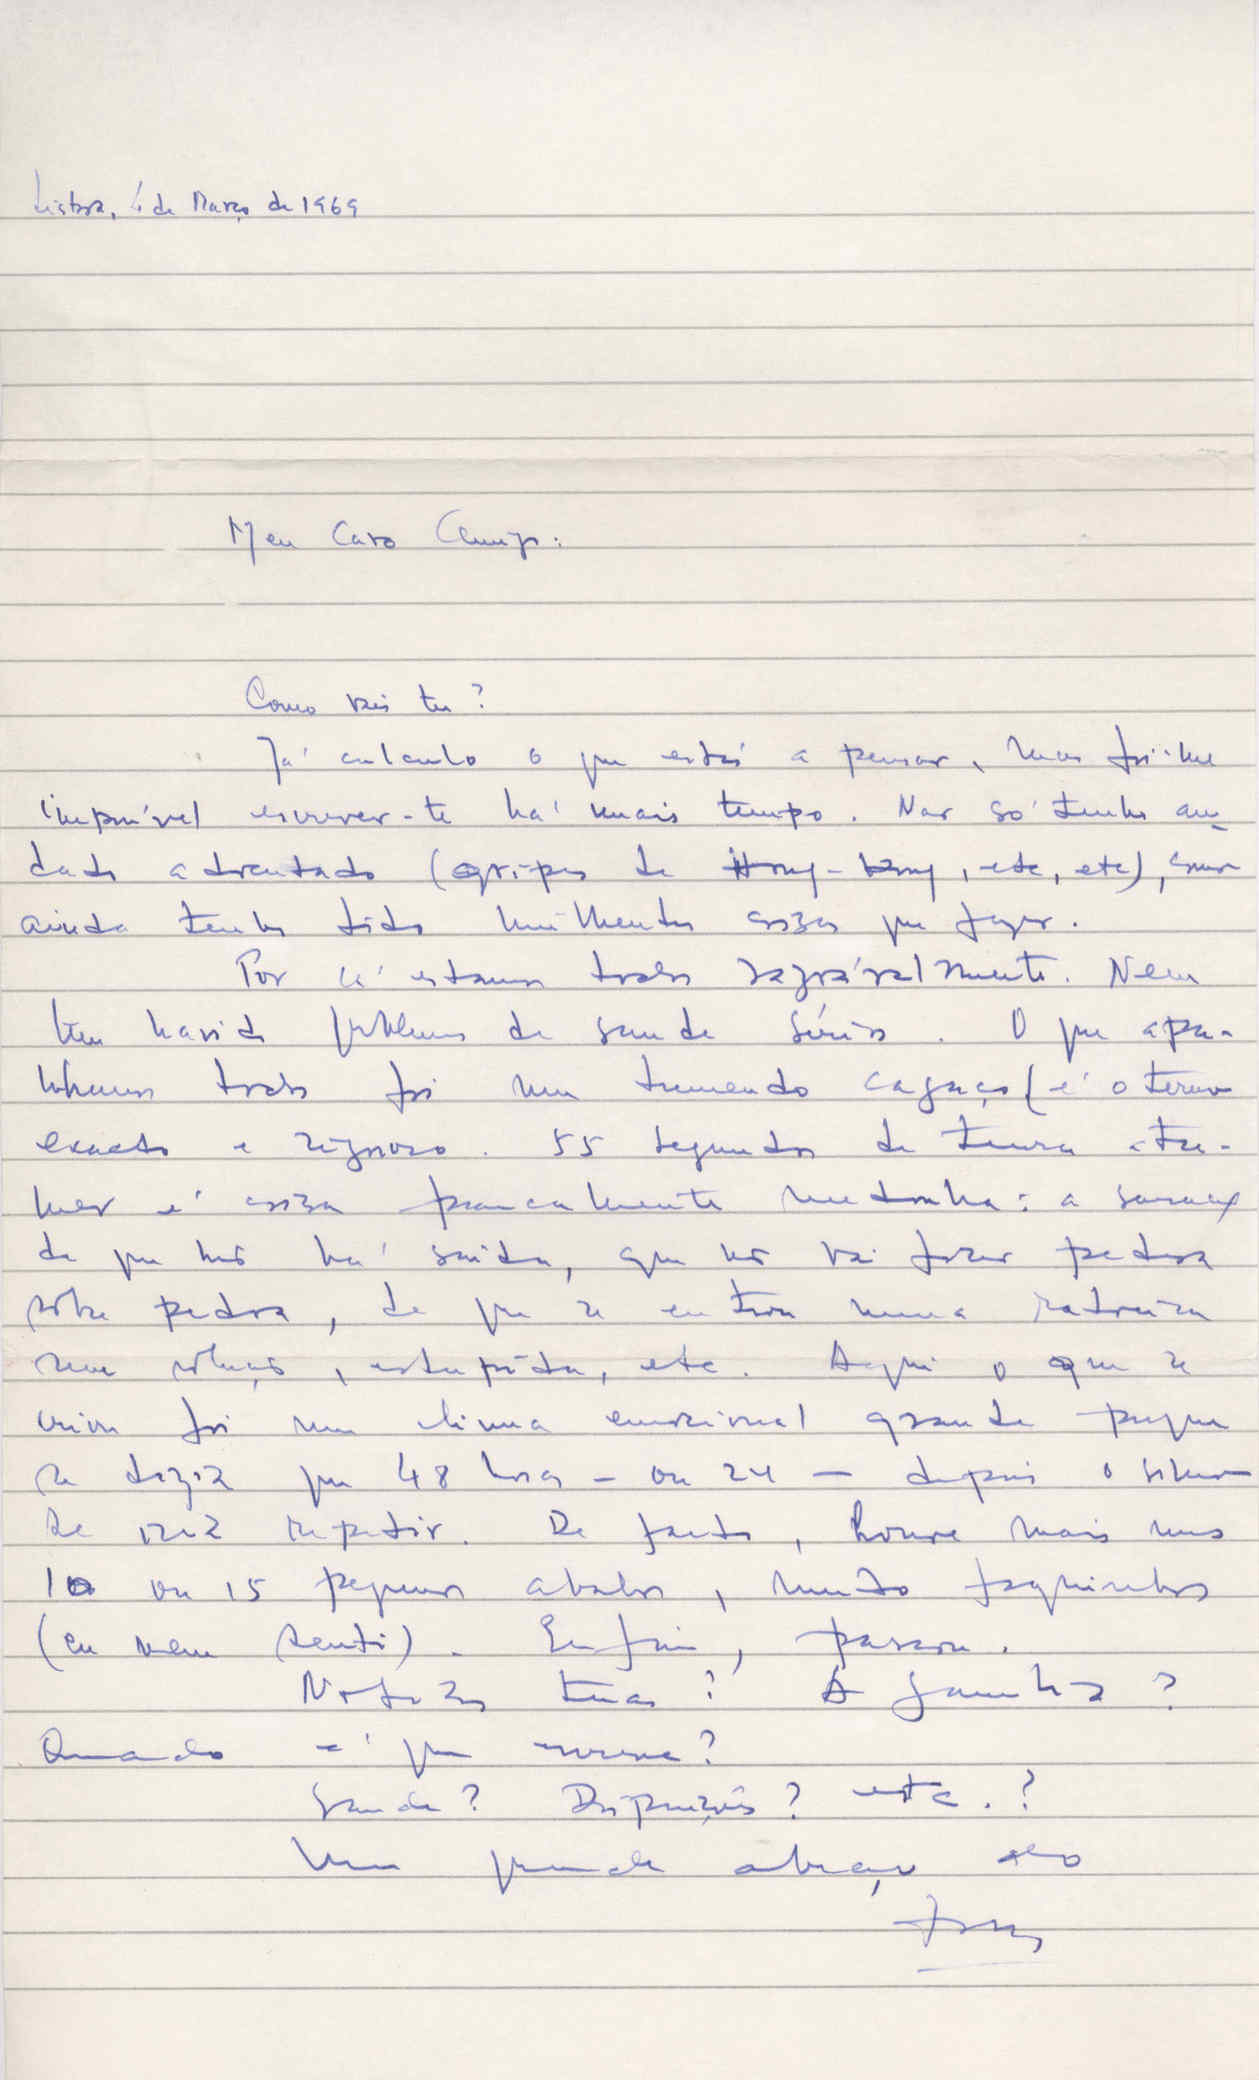 Lisboa, 4 de Março de 1969
Meu Caro
Como vais tu?
Já calculo o que estás a pensar, mas foi-me
impossível escrever-te há mais tempo. Não só tenho an-
dado adoentado (gripes de Hong-Kong, etc, etc), como
ainda tenho tido milhentas coisas que fazer.
Por cá estamos todos razoávelmente. Nem
tem havido problemas de saude sérios. O que apa-
nhamos todos foi um tremendo cagaço (é o termo
exacto e rigoroso. 55 segundos de terra a tre-
mer é coisa francamente medonha: a sensação
de que não há saída, que não vai ficar pedra
sobre pedra, de que se entrou numa ratoeira
sem solução, estupida, etc. Aqui o que se
criou foi um clima emocional grande porque
se dizia que 48 horas - ou 24 - depois o sismo
se iria repetir. De facto, houve mais uns
10 ou 15 pequenos abalos, muito fraquinhos
(eu nem senti). Enfim, passou.
Notícias tuas? A Ganha?
Quando é que escreve?
Saude? Disposição? etc.?
Um grande abraço do